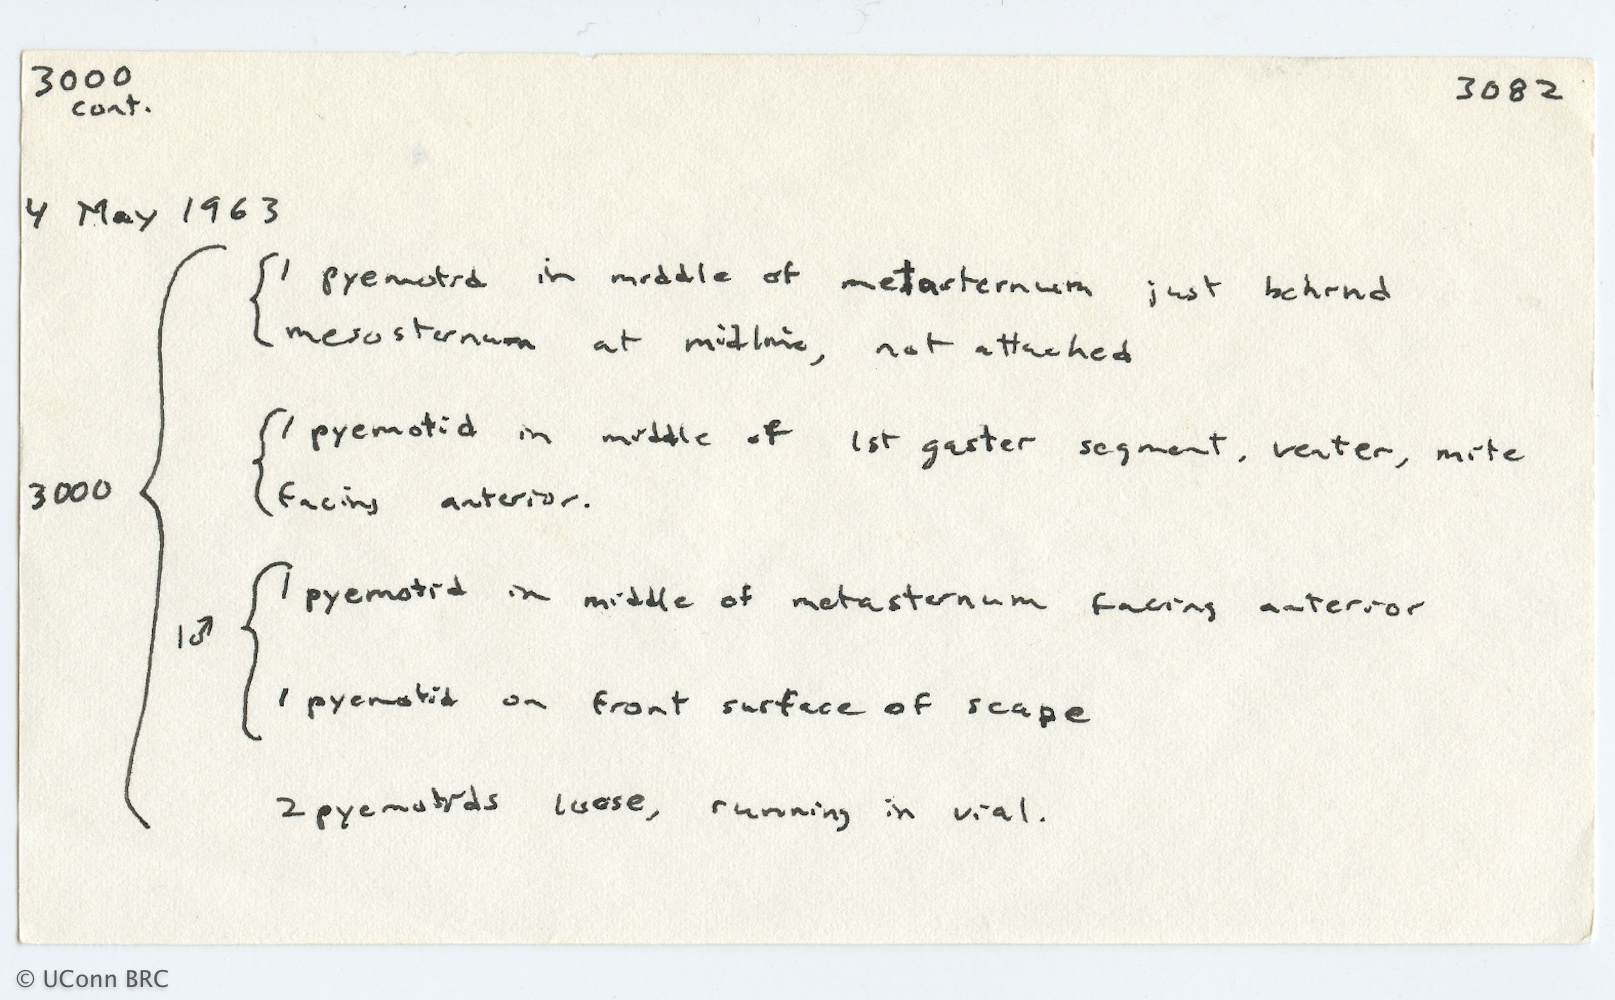 3000 3082
cont.
4 May 1963
1 pyemotid in middle of metasternum just behind
mesosternum at midline, not attached
1 pyemotid in middle of 1st gaster segment, venter, mite
3000
facing anterior.
1 pyemotid in middle of metasternum facing anterior
1♂
1 pyemotid on front surface of scape
2 pyemotids loose, running in vial.
© UConn BRC